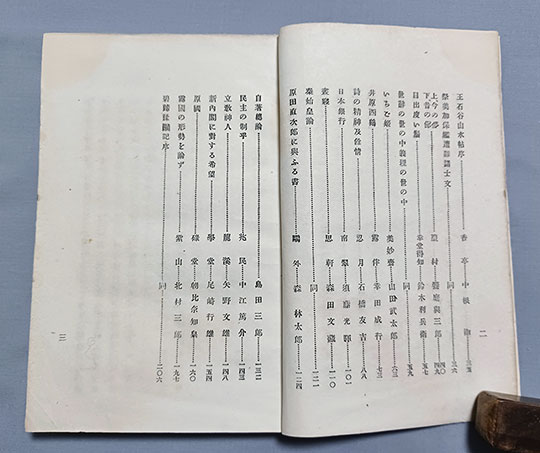 王石谷山水帖序……香亭中根淑…三五
祭美加保艦遭難諸士文……同…三六
上今の俗
下昔の俗……篁村饗庭與三郎…四〇
四九
目出度い腦……幸堂得知 鈴木利兵衞…五七
世辭の世の中義理の世の中……同…五九
いちご姫……美妙齋山田武太郎…六三
井原西鶴……露伴幸田成行…七三
詩の精神及餘情……忍月石橋友吉…八八
日本銀行……南翠須藤光暉…一〇一
叢寢……思軒森田文藏…一一〇
秦始皇論……同…一二一
原田直次郎に與ふる書……鷗外森林太郎…一二四
二
自著總論……島田三郎…一三二
民主の制乎……兆民中江篤介…一四三
立敎神人……龍溪矢野文雄…一四八
新内閣に對する希望……學堂尾崎行雄…一五四
原國……碌堂朝比奈知泉…一六〇
露國の形勢を論ず……紫山北村三郎…一九七
同…二〇六
三